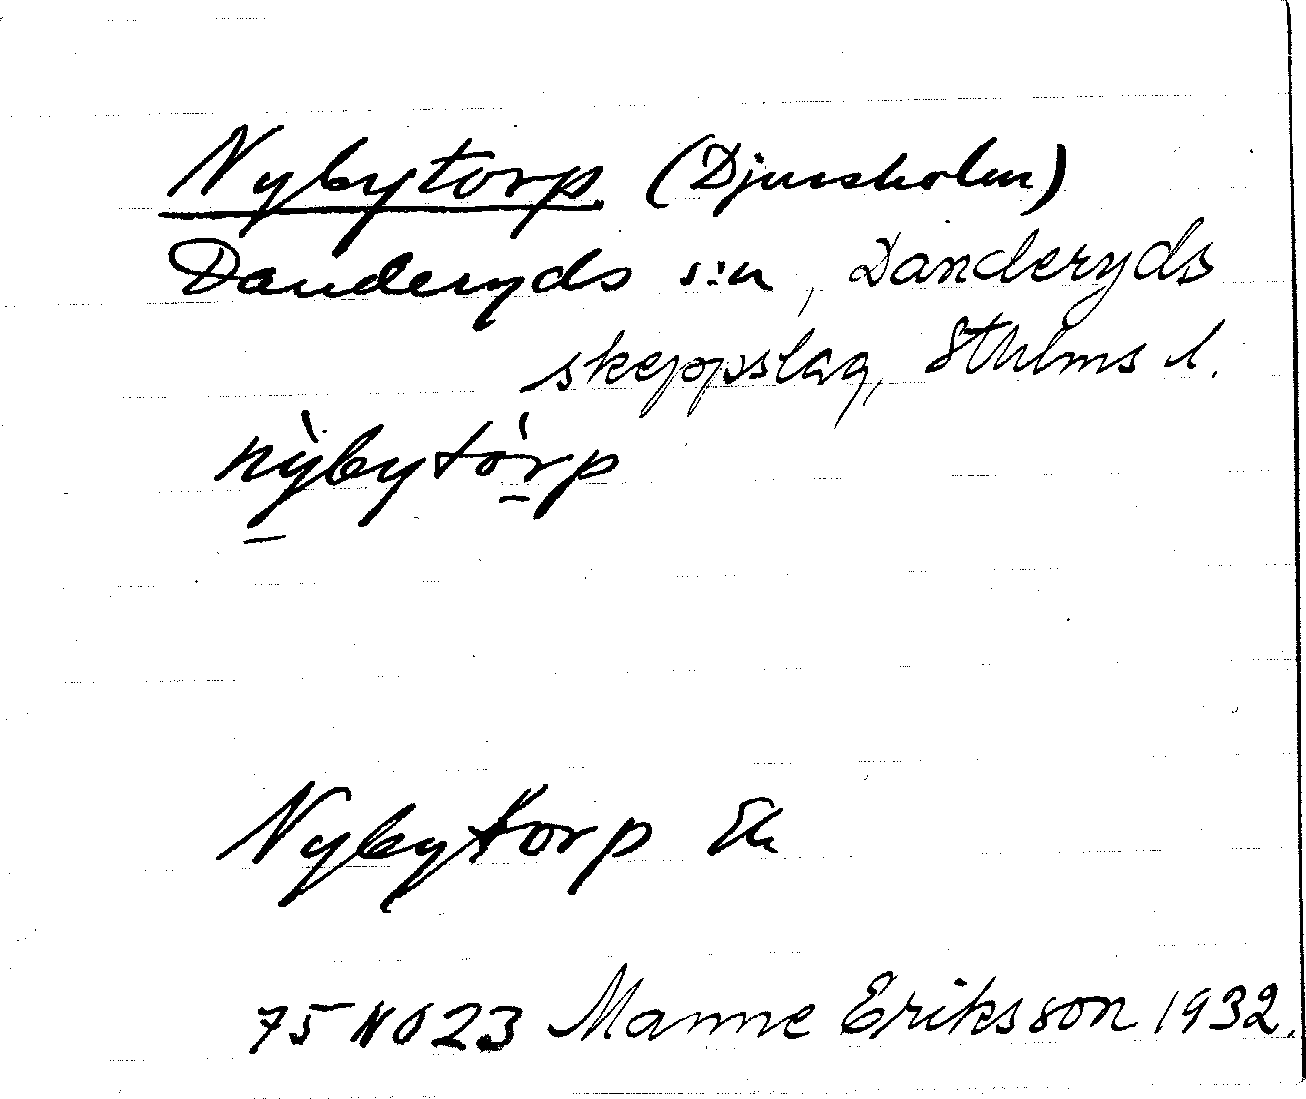 Nybytorp (Djursholm)
Danderyds s:n, Danderyds
skeppslag, Sthlms l.
nỳbytór̲p
Nybytorp Ek
75 NO 23 Manne Eriksson 1932.